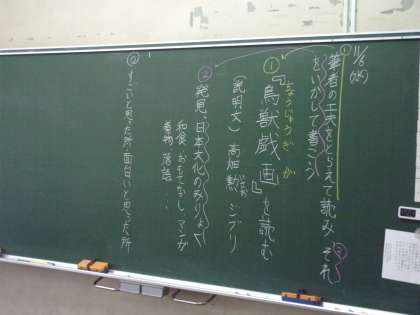 11/6(水)
①
筆者の工夫をとらえて読み それ②
をいかして書こう
①『鳥獣戯画』を読む
ちょうじゅうぎが
(説明文) 高畑 勲 ジブリ
いさお
② 発見、日本文化のみりょく
和食 おもてなし マンガ
着物 落語 ・・・
◎ すごいと思った所 面白いと思った所